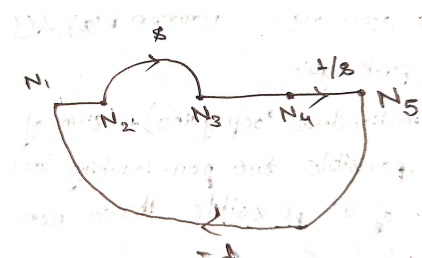 $
1/8
N1
N2
N3
N4
N5
-1